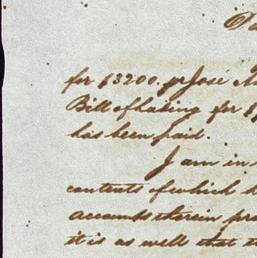 for $3200. pr Jose
Bill of Lading for
has been paid.
I am in
contents of which
accounts therein
it is as well that